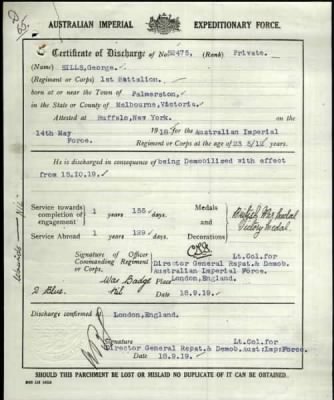 AUSTRALIAN IMPERIAL EXPEDITIONARY FORCE.
Certificate of Discharge of No 52475, (Rank) Private.
(Name) HILLS, George.
(Regiment or Corps) 1st Battalion.
born at or near the Town of Palmerston,
in the State or County of Melbourne, Victoria.
Attested at Buffalo, New York.
14th May 1918 for the Australian Imperial
Force. Regiment or Corps at the age of 23 5/12 years.
He is discharged in consequence of being Demobilized with effect
from 18.10.19.
Service towards completion of engagement 1 years 155 days.
Service Abroad 1 years 129 days.
Medals and Decorations British War Medal
Victory Medal
Signature of Officer Commanding Regiment or Corps. Lt. Col. for
Director General Repat. & Demob.
Australian Imperial Force.
London, England.
War Badge
2 Blue. Nil Date 18.9.19.
Wounds - Nil
Discharge confirmed London, England.
Signature Lt. Col. for
Director General Repat. & Demob. Aust: Imp: Force.
Date 18.9.19.
SHOULD THIS PARCHMENT BE LOST OR MISLAID NO DUPLICATE OF IT CAN BE OBTAINED.